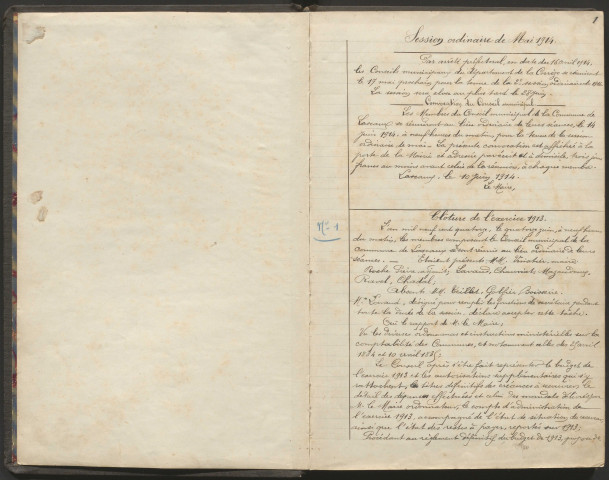 1
Session ordinaire de Mai 1914.
Par arrêté préfectoral, en date du 16 avril 1914.
les Conseils municipaux du département de la Corrèze se réuniront
le 17 mai prochain pour la tenue de la 2e session ordinaire de
La session sera close au plus tard le 28 juin.
Convocation du Conseil municipal
Les Membres du Conseil municipal de la Commune de
se réuniront au lieu ordinaire de leurs séances, le 14
juin 1914, à neuf heures du matin, pour la tenue de la session
ordinaire de mai. La présente convocation est affichée à la
porte de la Mairie et adressée par écrit et à domicile, trois jours
francs au moins avant celui de la réunion, à chaque membre.
le 10 Juin 1914.
Le Maire,
Clôture de l'exercice 1913.
N° 1
L'an mil neuf cent quatorze, le quatorze juin, à neuf heures
du matin, les membres composant le Conseil municipal de la
commune de se sont réunis au lieu ordinaire de leurs
séances. — Etaient présents: MM. maire
Absents MM.
Mr désigné pour remplir les fonctions de secrétaire pendant
toute la durée de la session, déclare accepter cette tâche.
Ouï le rapport de M. le Maire,
Vu les diverses ordonnances et instructions ministérielles sur la
comptabilité des Communes, et notamment celles des
1834 et 10 avril 1835;
Le Conseil après s'être fait représenter le budget de
l'exercice 1913 et les autorisations supplémentaires qui s'y
rattachent, les titres définitifs des créances à recouvrer, le
détail des dépenses effectuées et celui des mandats délivrés par
M. le Maire ordonnateur, le compte d'administration de
l'exercice 1913, accompagné de l'état de situation du receveur
ainsi que l'état des restes à payer, reportés sur 1913;
Procédant au règlement définitif du budget de 1913, propose de